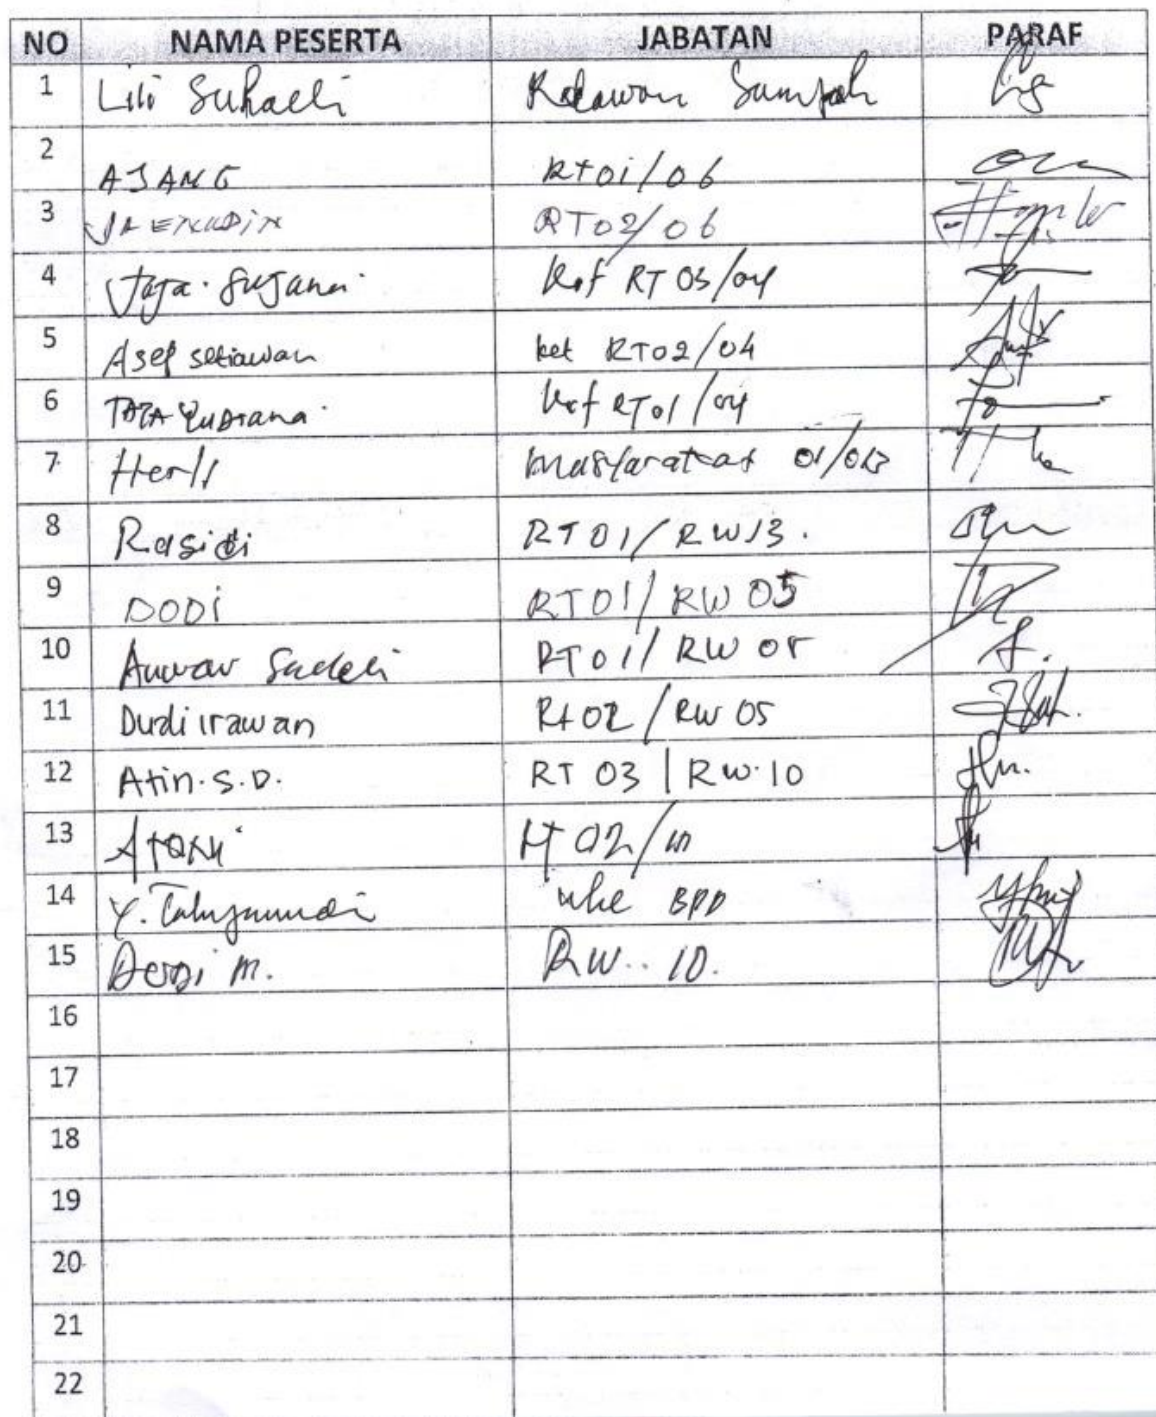 NO NAMA PESERTA JABATAN PARAF
1 Lili Suhaeli Relawan Sampah
2 AJANG Rt01/06
3 JAENUDIN RT02/06
4 Jaja. Sujana. Ket RT 03/04
5 Asep setiawan ket RT02/04
6 TATA Yudiana. Ket RT01/04
7 Herli 01/013
8 Rasidi RT 01/RW13.
9 DODi RT01/RW 05
10 Anwar RT01/RW 05
11 Dudi irawan Rt02/RW 05
12 Atin.S.D. RT 03 | RW.10
13 02/
14 Y. BPD
15 M. RW..10.
16
17
18
19
20
21
22